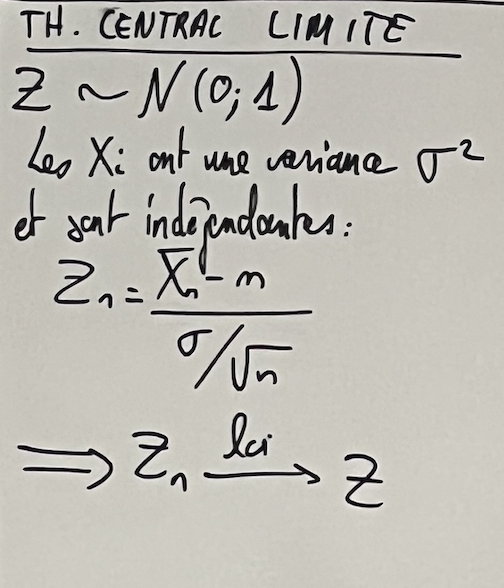 TH. CENTRAL LIMITE
Z ~ N(0;1)
Les Xi ont une variance σ²
et sont indépendantes:
Zn = (X̄n - m) / (σ/√n)
⟹ Zn loi⟶ Z